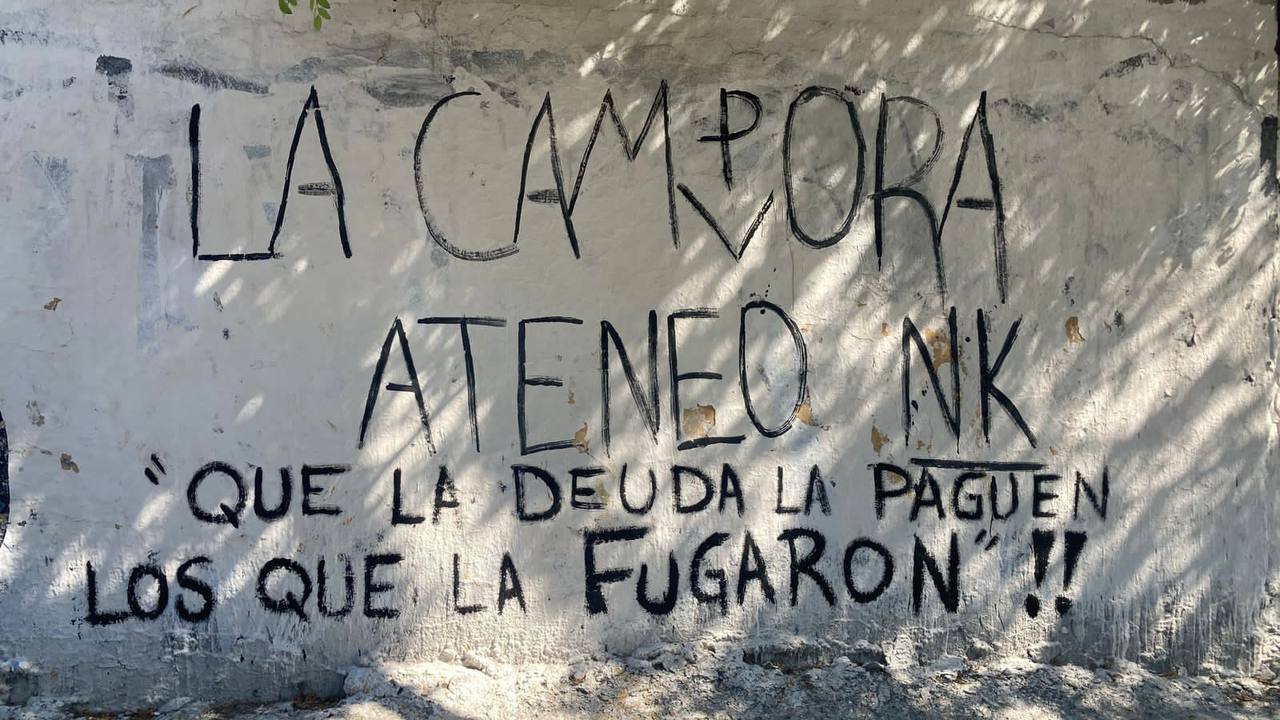 LA CAMPORA
ATENEO NK
"QUE LA DEUDA LA PAGUEN
LOS QUE LA FUGARON"!!